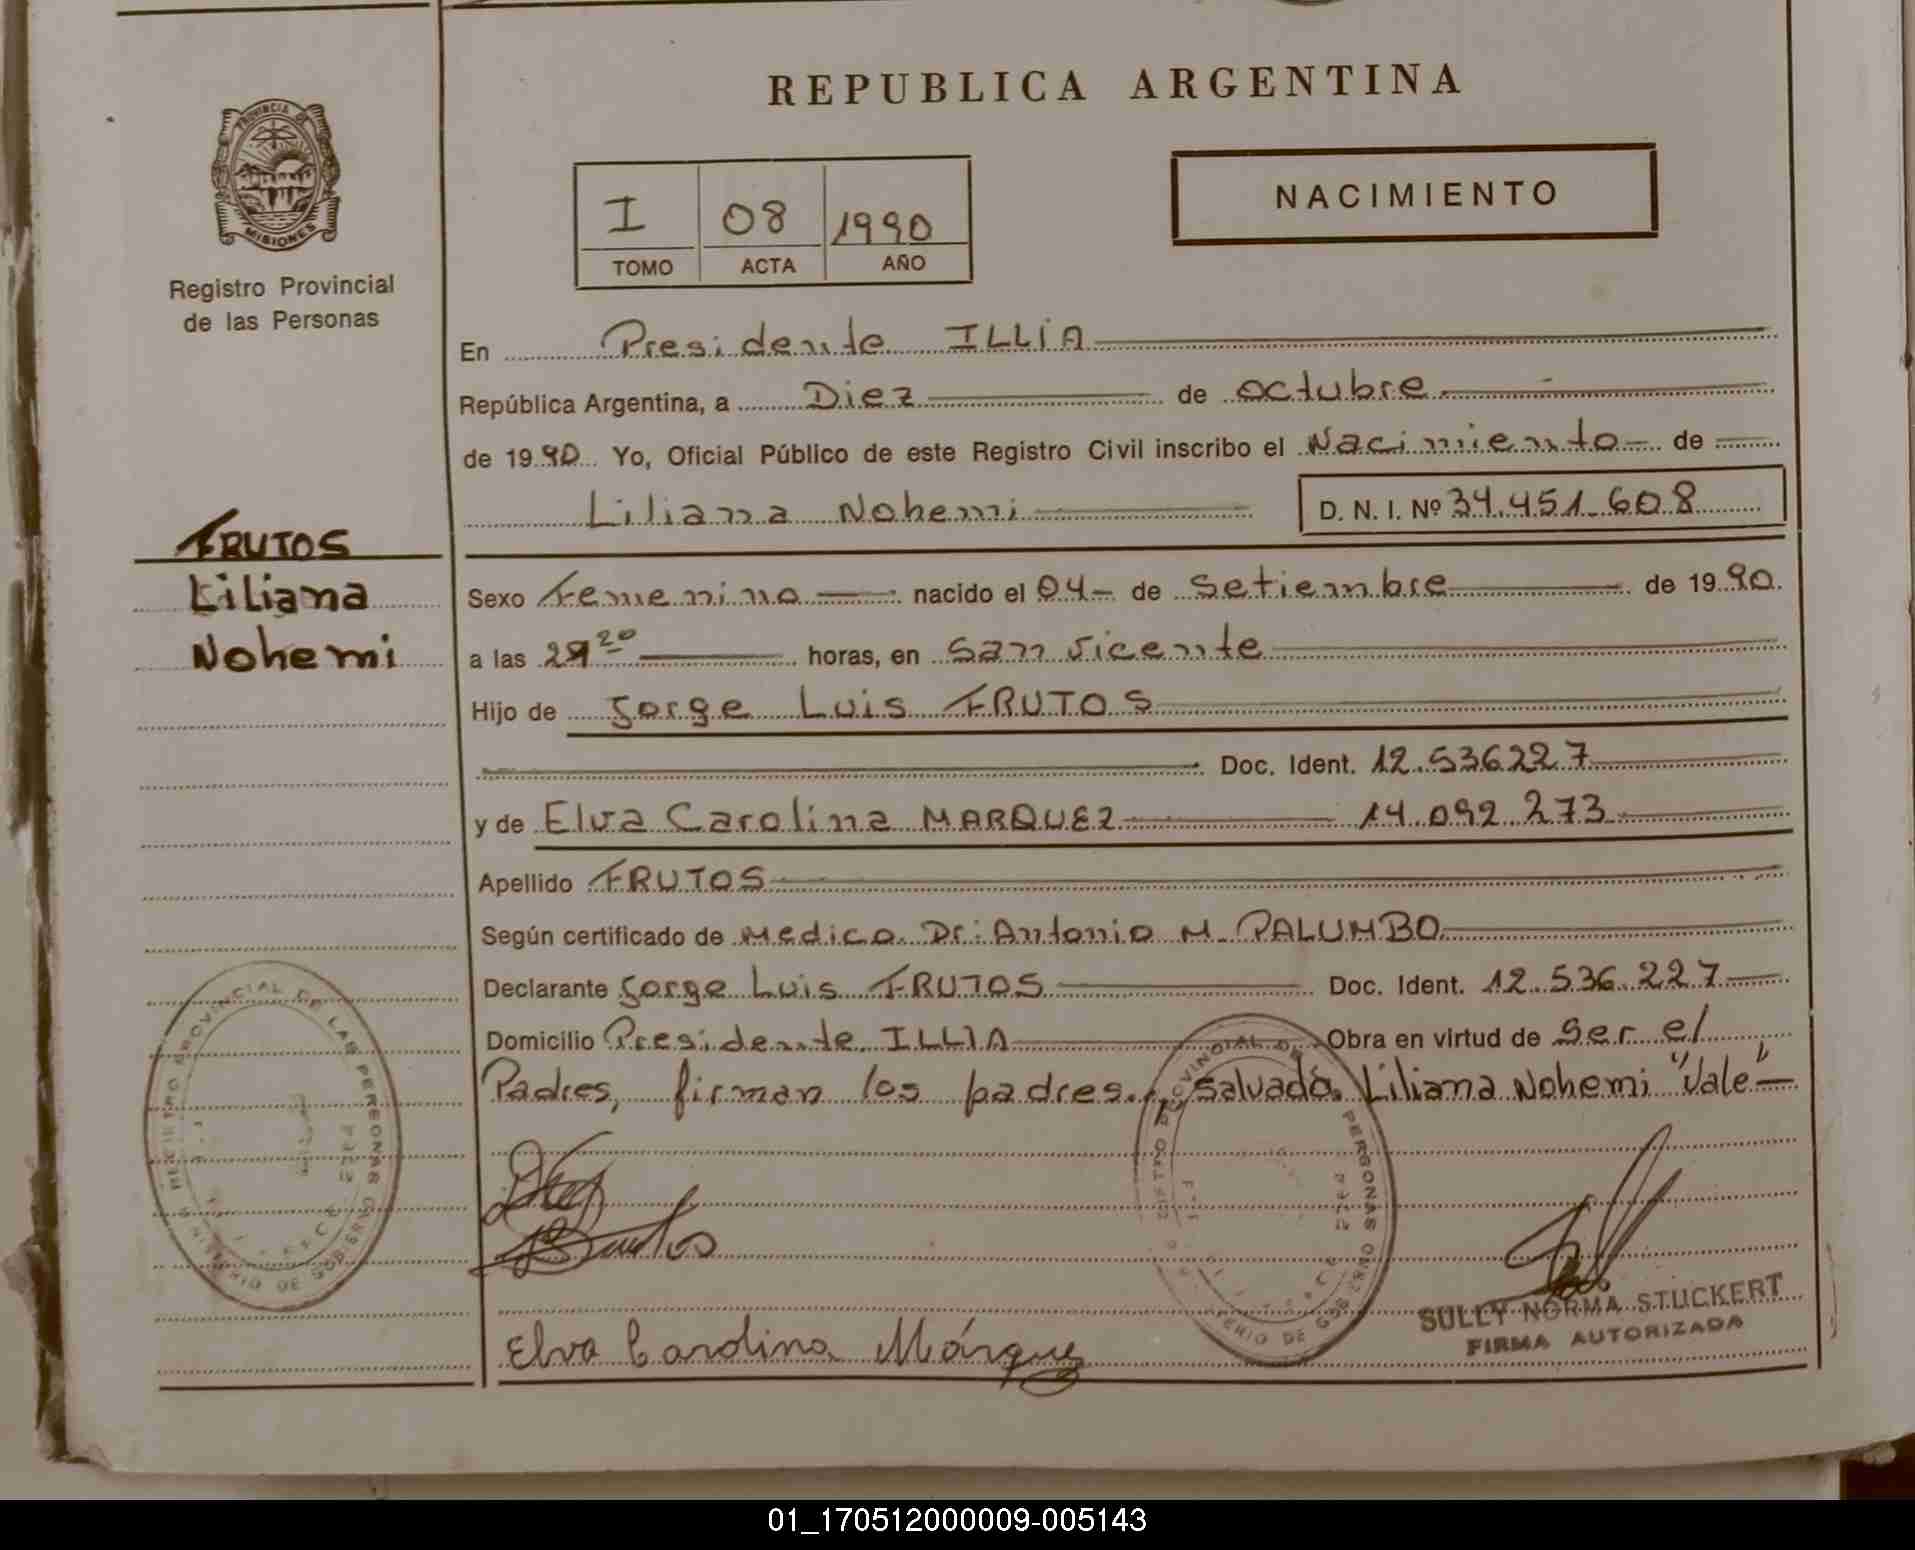 REPUBLICA ARGENTINA
PROVINCIA DE
MISIONES
Registro Provincial
de las Personas
I 08 1990
TOMO ACTA AÑO
NACIMIENTO
En Presidente ILLIA
República Argentina, a Diez de octubre
de 1990 Yo, Oficial Público de este Registro Civil inscribo el Nacimiento de
Liliana Nohemi D. N. I. Nº 34.451.608
FRUTOS
Liliana
Nohemi
Sexo Femenino nacido el 04 de Setiembre de 1990.
a las horas, en San Vicente
Hijo de Jorge Luis FRUTOS
Doc. Ident. 12.536227
y de Elva Carolina MARQUEZ 14.092.273
Apellido FRUTOS
Según certificado de Medico Dr: Antonio M. PALUMBO
Declarante Jorge Luis FRUTOS Doc. Ident. 12.536.227
Domicilio Presidente ILLIA Obra en virtud de Ser el
Padres, firman los padres., Salvado. Liliana Nohemi "Vale"
REGISTRO PROVINCIAL DE LAS PERSONAS
Elva Carolina Márquez
SULLY NORMA STUCKERT
FIRMA AUTORIZADA
01_170512000009-005143